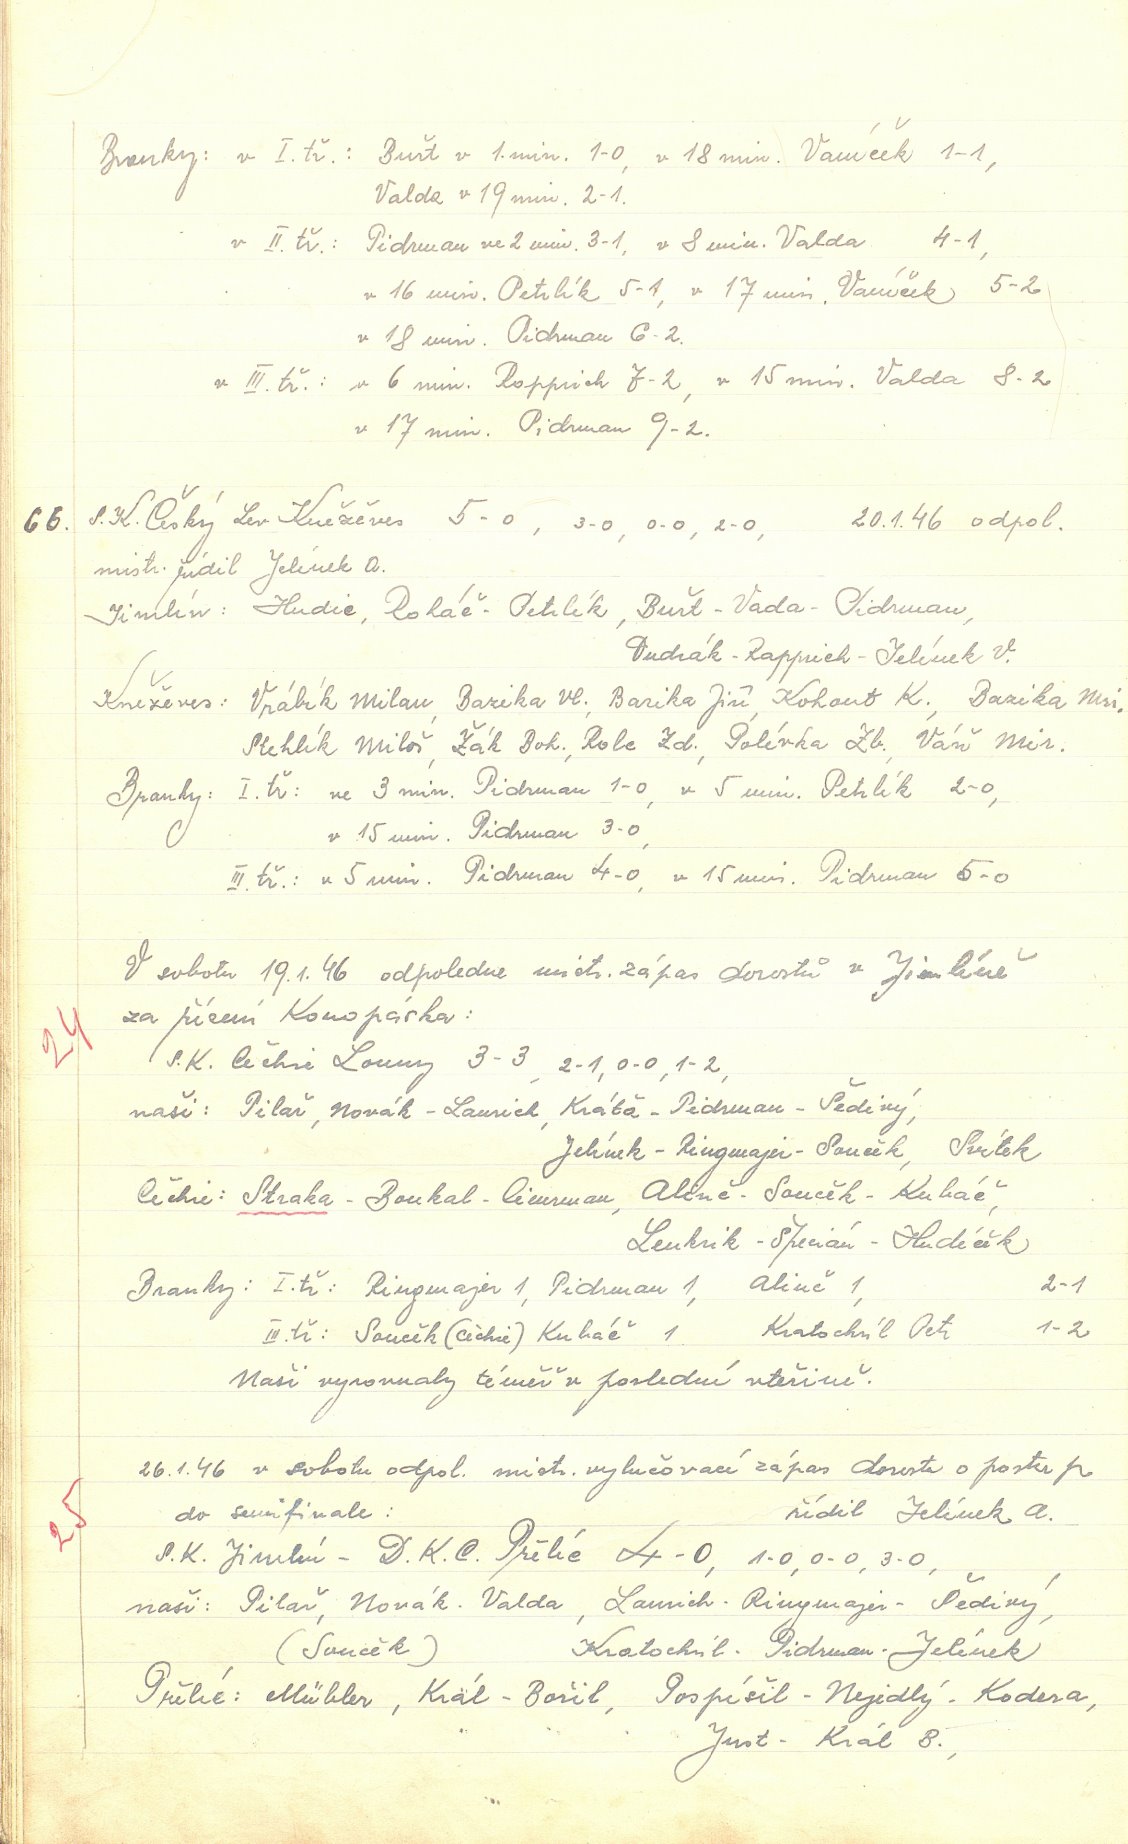 Branky: v I. tř.: Buřt v 1. min. 1-0, v 18 min. Vaníček 1-1,
Valda v 19 min. 2-1.
v II. tř.: Pidrman ve 2 min. 3-1, v 8 min. Valda 4-1,
v 16 min. Petrlík 5-1, v 17 min. Vaníček 5-2
v 18 min. Pidrman 6-2.
v III. tř.: v 6 min. Rapprich 7-2, v 15 min. Valda 8-2
v 17 min. Pidrman 9-2.
66. S.K. Český Lev Kněžěves 5-0, 3-0, 0-0, 2-0, 20.1.46 odpol.
mistr. řídil Jelínek A.
Jimlín: Hudic, Roháč - Petrlík, Buřt - Vada - Pidrman,
Dudák - Rapprich - Jelínek V.
Kněževes: Vrábík Milan, Bazika Vl., Barika Jiří, Kohout K., Bazika Mir.
Stehlík Miloš, Žák Boh., Role Zd., Polívka Zb., Váň Mir.
Branky: I. tř: ve 3 min. Pidrman 1-0, v 5 min. Petrlík 2-0,
v 15 min. Pidrman 3-0,
III. tř.: v 5 min. Pidrman 4-0, v 15 min. Pidrman 5-0
V sobotu 19.1.46 odpoledne mistr. zápas dorostů v Jimlíně
24 za řízení Konopáska:
S.K. Čechie Louny 3-3, 2-1, 0-0, 1-2,
naši: Pilař, Novák - Laurich, Krátá - Pidrman - Šedivý,
Jelínek - Ringmajer - Souček, Svítek
Čechie: Straka - Boukal - Cimrman, Alině - Souček - Kuháč,
Lenkrik - Specián - Hudíček
Branky: I. tř: Ringmajer 1, Pidrman 1, Alině 1, 2-1
III. tř: Souček (Čechie) Kuháč 1 Kratochvíl Petr 1-2
Naši vyrovnaly téměř v poslední vteřině.
26.1.46 v sobotu odpol. mistr. vylučovací zápas dorostu o postup
25 do semifinale: řídil Jelínek A.
S.K. Jimlín - D.K.C. Pětilé 4-0, 1-0, 0-0, 3-0,
naši: Pilař, Novák - Valda, Laurich - Ringmajer - Šedivý,
(Souček) Kratochvíl - Pidrman - Jelínek
Mühler, Král - Bořil, Pospíšil - Nejedlý - Kodera,
Just - Král B.,